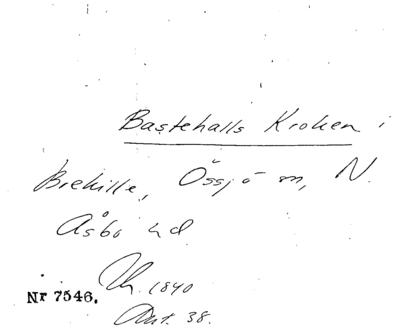 Bastehalls Kroken i
Brehille, Össjö sn, N.
Åsbo hd
Nr 7546. Th. 1840
Ant. 38.